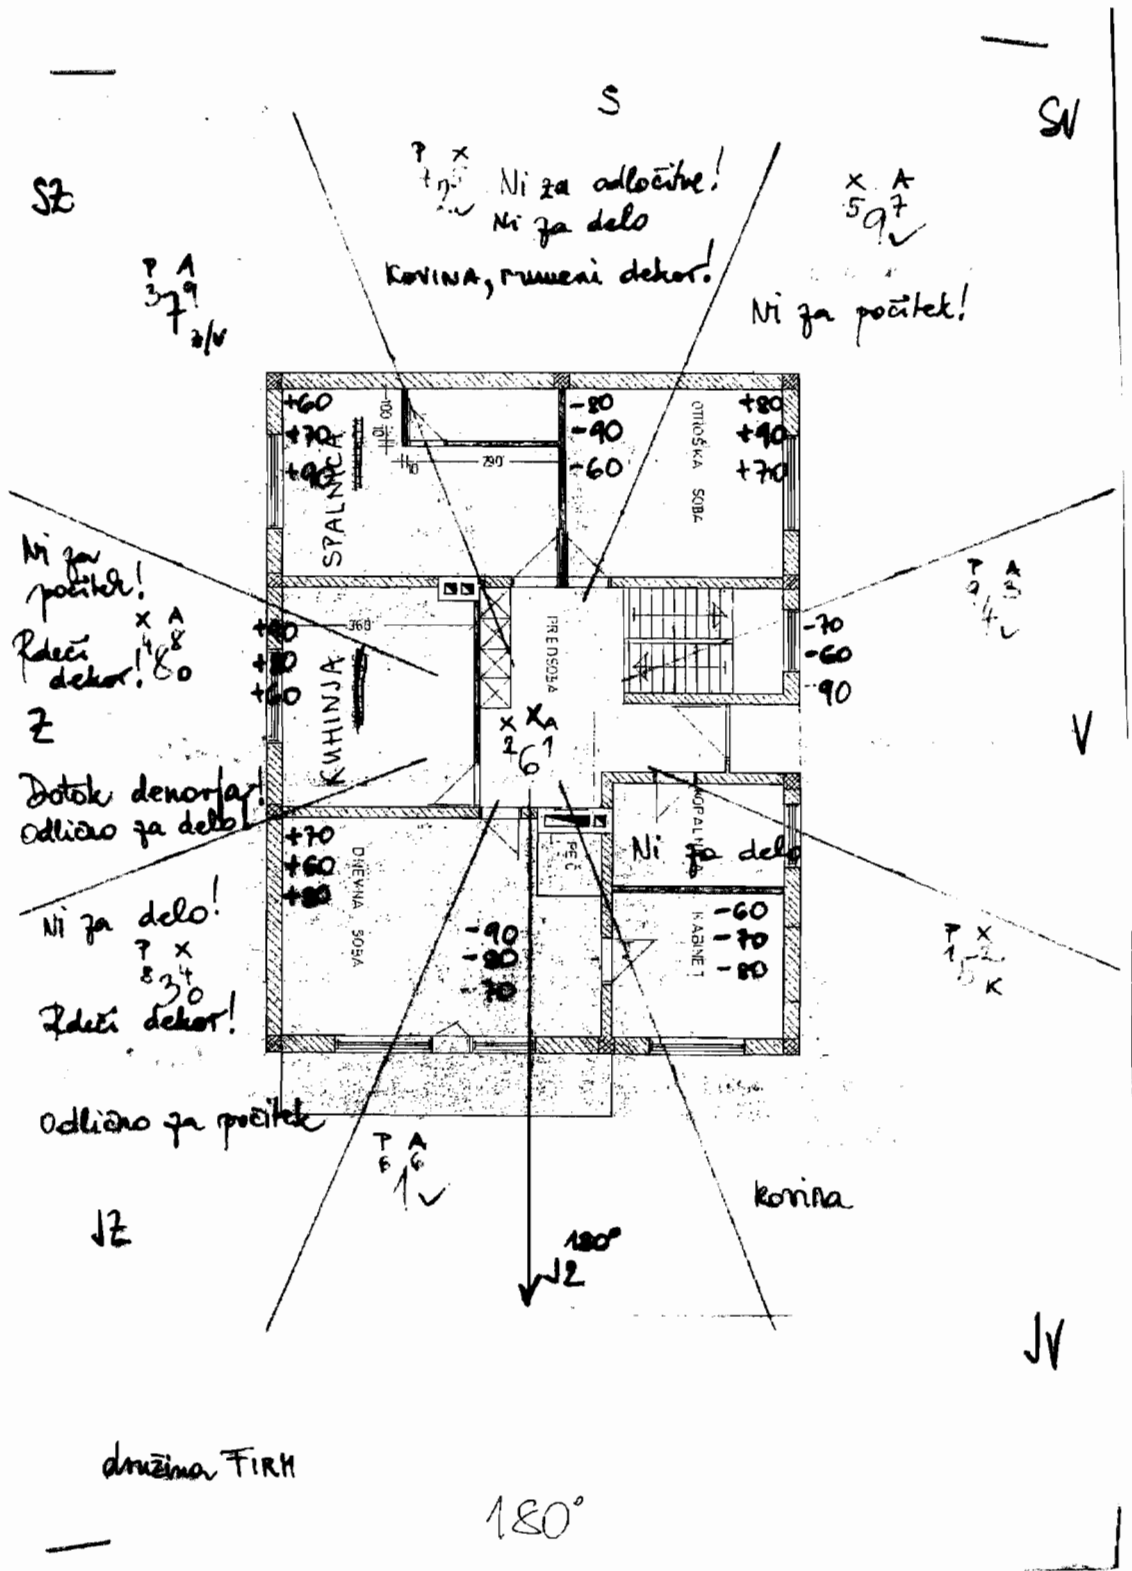 S
SV
SZ
P X
Ni za odločitve!
Ni za delo
KOVINA, rumeni dekor!
X A
5 7
9
P A
3 9
7
z/v
Ni za počitek!
+60
+70
+90
SPALNICA
100
10
10
290
-80
-90
-60
OTROŠKA SOBA
+80
+90
+70
Ni za
počitek!
X A
4 8
8 0
Rdeči
dekor!
+60
360
KUHINJA
PREDSOBA
P A
9 3
4
-70
-60
-90
X X A
2 1
6
Z
V
Dotok denarja!
Odlično za delo!
+70
+60
+80
DNEVNA SOBA
PEČ
Ni za delo
KABINET
-60
-70
-80
-90
-80
-70
Ni za delo!
P X
8 4
3 0
Rdeči dekor!
P X
1 2
5 K
Odlično za počitek
P A
6 6
1
kovina
JZ
180°
J2
JV
družina FIRM
180°